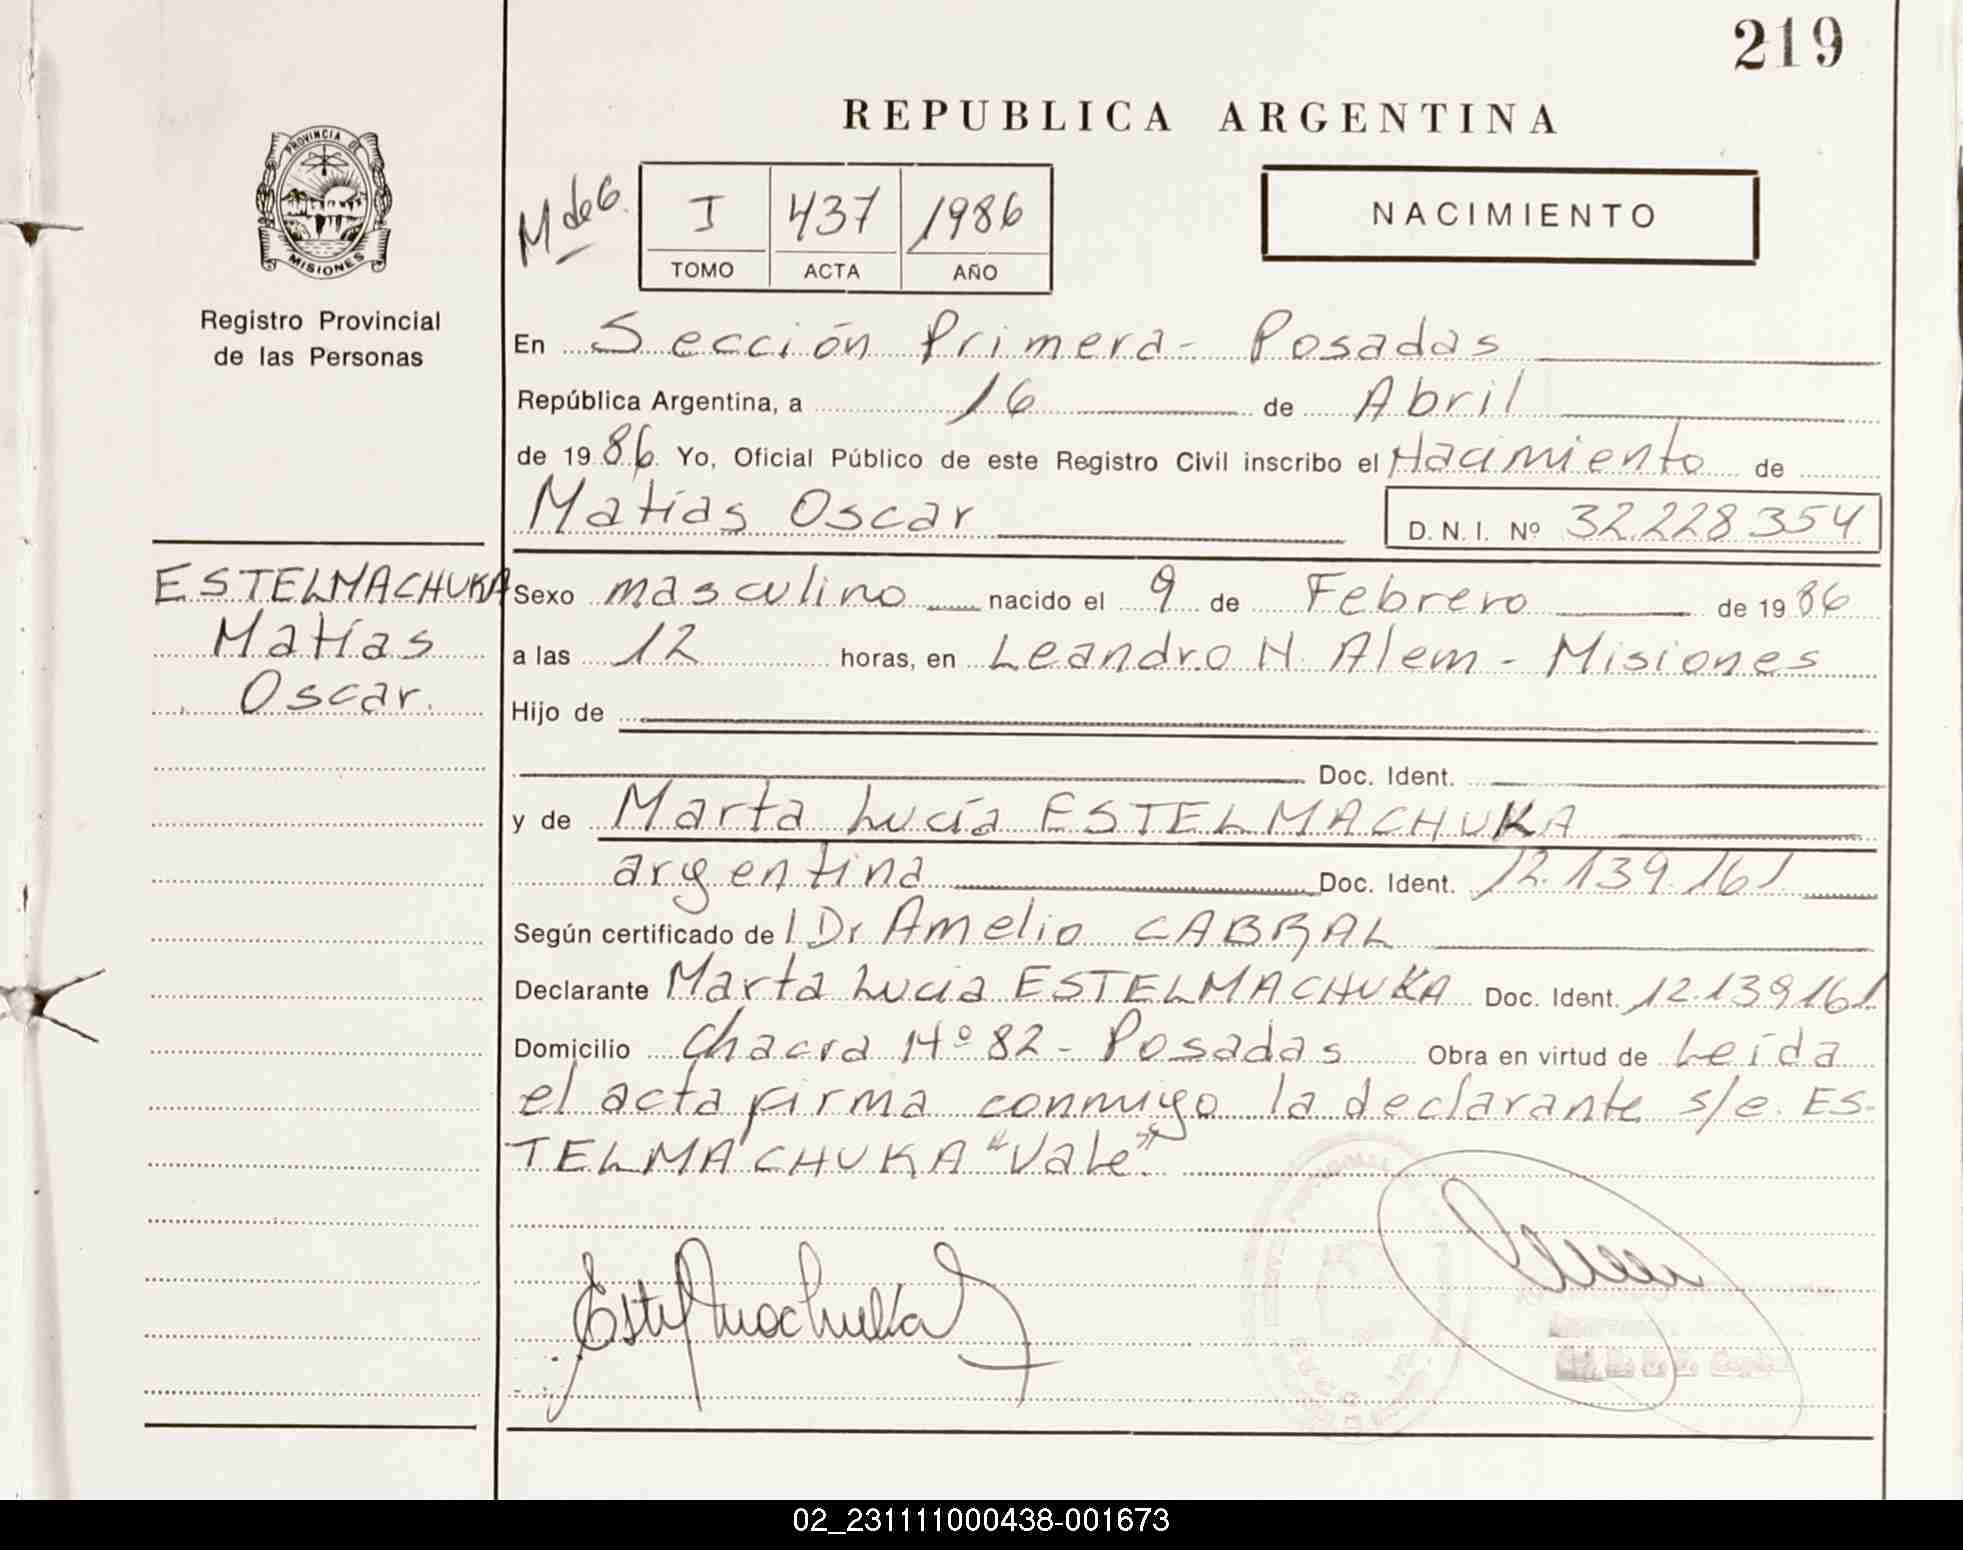 219
REPUBLICA ARGENTINA
PROVINCIA DE
MISIONES
Registro Provincial
de las Personas
M de G.
I 437 1986
TOMO ACTA AÑO
NACIMIENTO
En Sección Primera - Posadas
República Argentina, a 16 de Abril
de 1986 Yo, Oficial Público de este Registro Civil inscribo el Nacimiento de
Matías Oscar D. N. I. Nº 32.228.354
ESTELMACHUKA
Matías
Oscar.
Sexo masculino nacido el 9 de Febrero de 1986
a las 12 horas, en Leandro N. Alem - Misiones
Hijo de
Doc. Ident.
y de Marta Lucía ESTELMACHUKA
argentina Doc. Ident. 12.139.161
Según certificado del Dr Amelio CABRAL
Declarante Marta Lucia ESTELMACHUKA Doc. Ident. 12.139161
Domicilio Chacra Nº 82 - Posadas Obra en virtud de Leída
el acta firma conmigo la declarante s/e. ES-
TELMACHUKA "Vale".
Estelmachuka
02_231111000438-001673